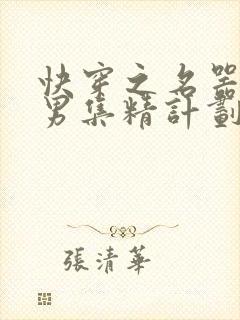 快穿之名器
男集精計劃
張清華